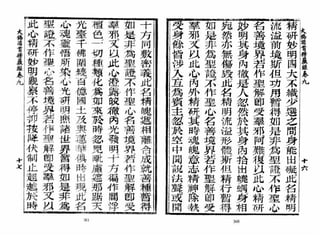 大佛頂首楞嚴經卷九
十六
精研妙明四大不織少選之間身能出礙此名精明
流溢前境斯但功用暫得如是非為聖證不作聖心
名善境界若作聖解即受羣邪阿難復以此心精研
妙明其身內徹是人忽然於其身內拾出蟯蛔身相
宛然亦無傷毀此名精明流溢形體斯但精行暫得
如是非為聖證不作聖心名善境界若作聖解即受
羣邪又以此心內外精研其時魂魄意志精神除執
受身餘皆涉入互為賓主忽於空中聞說法聲或聞
十方同敷密義此名精魄遞相離合成就善種暫得
如是非為聖證不作聖心名善境界若作聖解即受
羣邪又以此心澄露皎徹內光發明十方徧作閻浮
檀色一切種類化為如來於時忽見毗盧遮那踞天
光臺千佛圍繞百億國土及與蓮華俱時出現此名
心魂靈悟所染心光研明照諸世界暫得如是非為
聖證不作聖心名善境界若作聖解即受羣邪又以
此心精研妙明觀察不停抑按降伏制止超越於時
大佛頂首楞嚴經卷九
十七